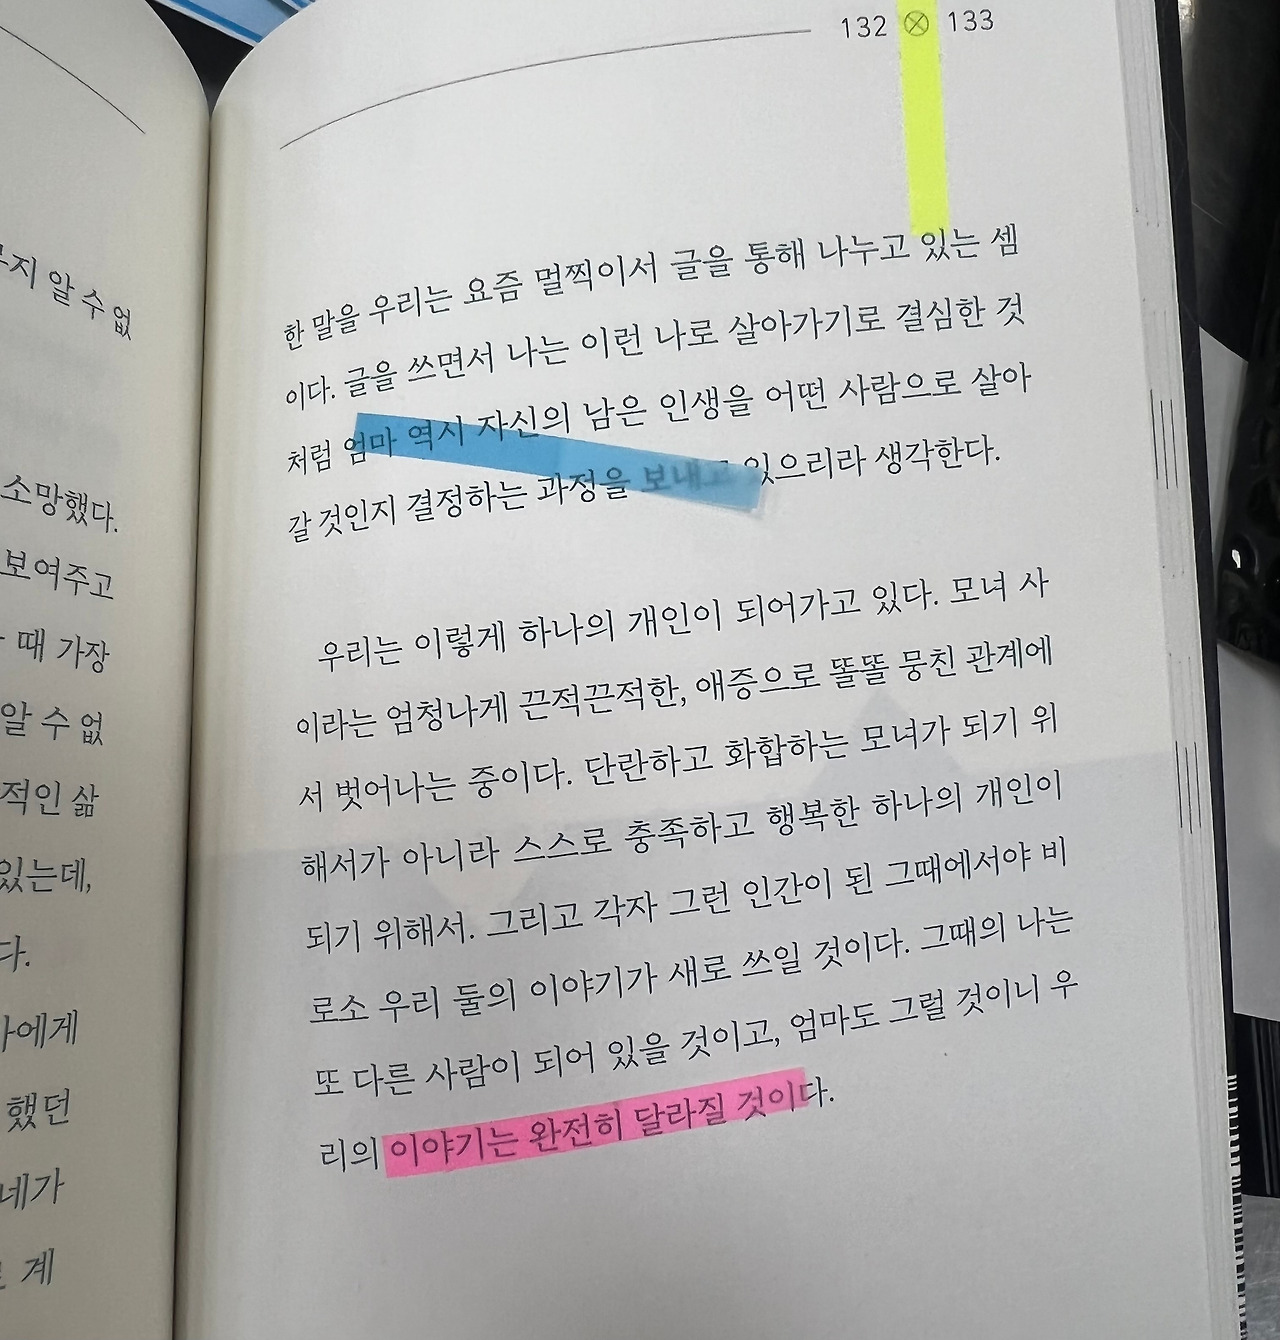 132 ⊗ 133
지 알 수 없
소망했다.
보여주고
때 가장
알 수 없
적인 삶
있는데,
다.
에게
했던
네가
계
한 말을 우리는 요즘 멀찍이서 글을 통해 나누고 있는 셈
이다. 글을 쓰면서 나는 이런 나로 살아가기로 결심한 것
처럼 엄마 역시 자신의 남은 인생을 어떤 사람으로 살아
갈 것인지 결정하는 과정을 보내고 있으리라 생각한다.
우리는 이렇게 하나의 개인이 되어가고 있다. 모녀 사
이라는 엄청나게 끈적끈적한, 애증으로 똘똘 뭉친 관계에
서 벗어나는 중이다. 단란하고 화합하는 모녀가 되기 위
해서가 아니라 스스로 충족하고 행복한 하나의 개인이
되기 위해서. 그리고 각자 그런 인간이 된 그때에서야 비
로소 우리 둘의 이야기가 새로 쓰일 것이다. 그때의 나는
또 다른 사람이 되어 있을 것이고, 엄마도 그럴 것이니 우
리의 이야기는 완전히 달라질 것이다.